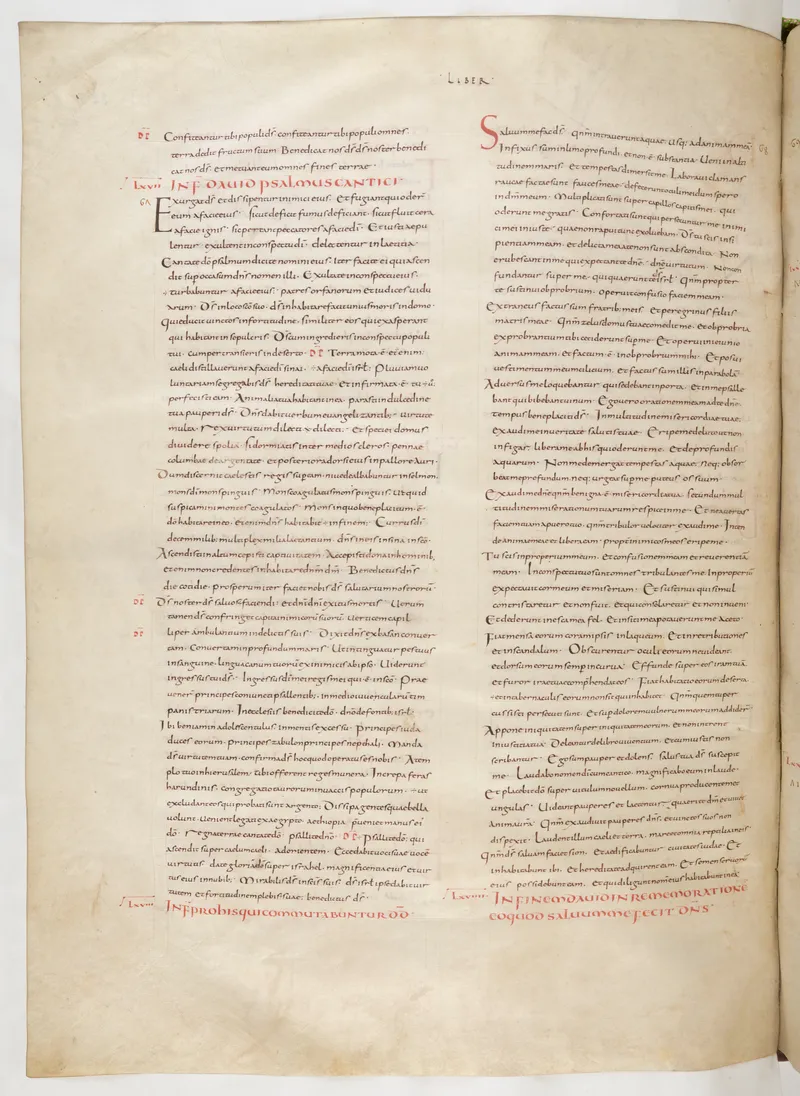 LIBER
Confiteantur tibi populi dś · confiteantur tibi populi omnes ·
terra dedit fructum suum · Benedicat nos dś dś noster benedi
cat nos dś · et metuant eum omnes fines terrae ·
LXVII INF DAVID PSALMUS CANTICI
Exurgat dś et dissipentur inimici eius · et fugiant qui oder
eum a facie eius · sicut deficit fumus deficiant · sicut fluit cera
a facie ignis · sic pereant peccatores a facie dī · Et iusti aepu
lentur · exultent in conspectu dī · delectentur in laetitia ·
Cantate dō psalmum dicite nomini eius · iter facite ei qui ascen
dit sup occasum dns nomen illi · Exultate in conspectu eius ·
turbabuntur a facie eius · patris orfanorum et iudicis uidu
arum · Dś in loco sco suo · dś inhabitare facit unius moris in domo ·
qui educit uinctos in fortitudine · similiter eos qui exasperant
qui habitant in sepulcris · Dś cum ingredieris in conspectu populi
tui · cum pertransieris in deserto · Terra mota ē · etenim
caeli distillauerunt a facie dī sinai · a facie dī isrl · Pluuiam uo
luntariam segregabis dś hereditati tuae · et infirmata ē · tu u
perfecisti eam · Animalia tua habitant in ea · parasti in dulcedine
tua pauperi dś · Dns dabit uerbum euangelizantib; · uirtute
multa · Rex uirtutum dilecti dilecti · et speciei domus
diuidere spolia · Si dormiatis inter medios cleros · pennae
columbae deargentatae · et posteriora dorsi eius in pallore auri ·
Dum discernit caelestis reges sup eam · niue dealbabuntur in selmon
mons dī mons pinguis · Mons coagulatus mons pinguis · Ut quid
suspicamini montes coagulatos · Mons in quo beneplacitum ē ·
dō habitare in eo · etenim dns habitabit · in finem · Currus dī
decem milib; multiplex milia laetantium · dns in eis in sina in sco ·
Ascendisti in altum cepisti captiuitatem · Accepisti dona in hominib;
etenim non credentes inhabitare dnm dm · Benedictus dns
die cotidie · prosperum iter faciet nobis dś salutarium nostrorū ·
Dś noster dś saluos faciendi · et dni dni exitus mortis · Uerum
tamen dś confringet capita inimicorū suorū · Uerticem capil
li perambulantium in delictis suis · Dixit dns ex basan conuer
tam · Conuertam in profundum maris · Ut intinguatur pes tuus
in sanguine · lingua canum tuorū ex inimicis ab ipso · Uiderunt
ingressus tui dś · Ingressus dī mei regis mei qui ē in sco · Prae
uener principes coniuncti psallentib; · in medio iuuencularum tim
panistriarum · In ecclesiis benedicite dō · dno de fontib; isrl ·
Ibi beniamin adolescentulus in mentis excessu · Principes iuda
duces eorum · principes zabulon principes nepthali · Manda
dś uirtutem tuam · confirma dś hoc quod operatus es nobis · A tem
plo tuo in hierusalem · tibi offerent reges munera · Increpa feras
harundinis · congregatio taurorum in uaccis populorum · ut
excludant eos qui probati sunt argento · Dissipa gentes quae bella
uolunt · Uenient legati ex aegypto · aethiopia pueniet manus ei
dō · Regna terrae cantate dō · psallite dno · Psallite dō · qui
ascendit super caelum caeli · ad orientem · Ecce dabit uoci suae uocē
uirtutis · date gloriā dō super israhel · magnificentia eius et uir
tus eius in nubib; · Mirabilis dś in scis suis · dś isrl ipse dabit uir
tutem et fortitudinem plebis suae · benedictus dś ·
LXVIII INF PRO HIS QUI COMMUTABUNTUR DD
Saluum me fac dś · Qnm intrauerunt aquae usq; ad animam meā ·
Infixus sum in limo profundi · et non ē substantia · Ueni in alti
tudinem maris · et tempestas dimersit me · Laboraui clamans
raucae factae sunt fauces meae · defecerunt oculi mei dum spero
in dnm meum · Multiplicati sunt super capillos capitis mei · qui
oderunt me gratis · Confortati sunt qui persecuntur me inimi
ci mei iniuste · quae non rapui tunc exoluebam · Dś tu scis insi
pientiam meam · et delicta mea a te non sunt abscondita · Non
erubescant in me qui expectant te dne · dne uirtutum · Non con
fundantur super me · qui quaerunt te dś isrl · Qnm propter
te sustinui obprobrium · operuit confusio faciem meam ·
Extraneus factus sum fratrib; meis · et peregrinus filiis
matris meae · Qnm zelus domus tuae comedit me · et obprobria
exprobrantium tibi ceciderunt sup me · Et operui in ieiunio
animam meam · et factum ē · in obprobrium mihi · Et posui
uestimentum meum cilicium · et factus sum illis in parabolā ·
Aduersus me loquebantur qui sedebant in porta · et in me psalle
bant qui bibebant uinum · Ego uero orationem meam ad te dne
tempus beneplaciti dś · In multitudine misericordiae tuae ·
exaudi me in ueritate salutis tuae · Eripe me de luto ut non
infigar · libera me ab his qui oderunt me · et de profundis
aquarum · Non me demergat tempestas aquae · neq; obsor
beat me profundum · neq; urgeat sup me puteus os suum ·
Exaudi me dne qnm benigna ē misericordia tua · secundum mul
titudinem miserationum tuarum respice in me · Et ne auertas
faciem tuam a puero tuo · qnm tribulor uelociter exaudi me · Inten
de animae meae et libera eam · propter inimicos meos eripe me ·
Tu scis inproperium meum · et confusionem meam et reuerentiā
meam · In conspectu tuo sunt omnes tribulantes me · Inproperiū
expectauit cor meum et miseriam · Et sustinui qui simul
contristaretur et non fuit · et qui consolaretur et non inueni ·
Et dederunt in esca mea fel · et in siti mea potauerunt me aceto ·
Fiat mensa eorum coram ipsis in laqueum · et in retributiones
et in scandalum · Obscurentur oculi eorum ne uideant ·
et dorsum eorum semp incurua · Effunde super eos iram tuā
et furor irae tuae comprehendat eos · Fiat habitatio eorum deserta
et in tabernaculis eorum non sit qui inhabitet · Qnm quem tu per
cussisti persecuti sunt · et sup dolorem uulnerum meorum addider
Appone iniquitatem super iniquitatem eorum · et non intrent
in iustitia tua · Deleantur de libro uiuentium · et cum iustis non
scribantur · Ego sum pauper et dolens · salus tua dś suscepit
me · Laudabo nomen dī cum cantico · magnificabo eum in laude ·
Et placebit dō super uitulum nouellum · cornua producentem et
ungulas · Uideant pauperes et laetentur · quaerite dm et uiuet
anima urā · Qnm exaudiuit pauperes dns · et uinctos suos non
dispexit · Laudent illum caeli et terra · mare et omnia reptilia in eis
Qnm dś saluam faciet sion · et aedificabuntur ciuitates iudae · Et
inhabitabunt ibi · et hereditate adquirent eam · Et semen seruorū
eius possidebunt eam · et qui diligunt nomen eius habitabunt in ea
LXVIIII IN FINEM DAVID IN REMEMORATIONE
EO QUOD SALUUM ME FECIT DNS